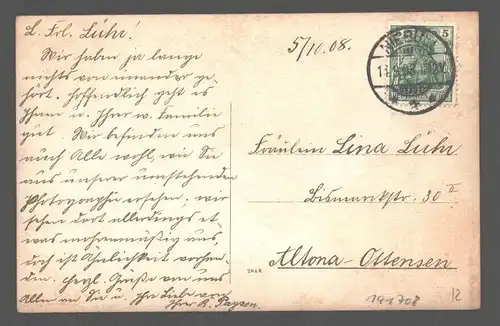 L. Frl. Lühr!
Wir haben ja lange
nichts voneinander ge-
hört. Hoffendlich geht es
Ihnen u. Ihrer w. Familie
gut. Wir befinden uns
auch Alle wohl, wie Sie
aus unserer umstehenden
Photographie ersehen; wir
sehen dort allerdings et-
was mohrenmäßig aus,
doch ist Ähnlichkeit vorhan-
den. Herzl. Grüße von uns
Allen an Sie u. Ihre Liebe von
Ihrer B. Paysen.
5/10.08.
5
Fräulein Lina Lühr
Bismarckstr. 30 II
Altona-Ottensen
191708
12